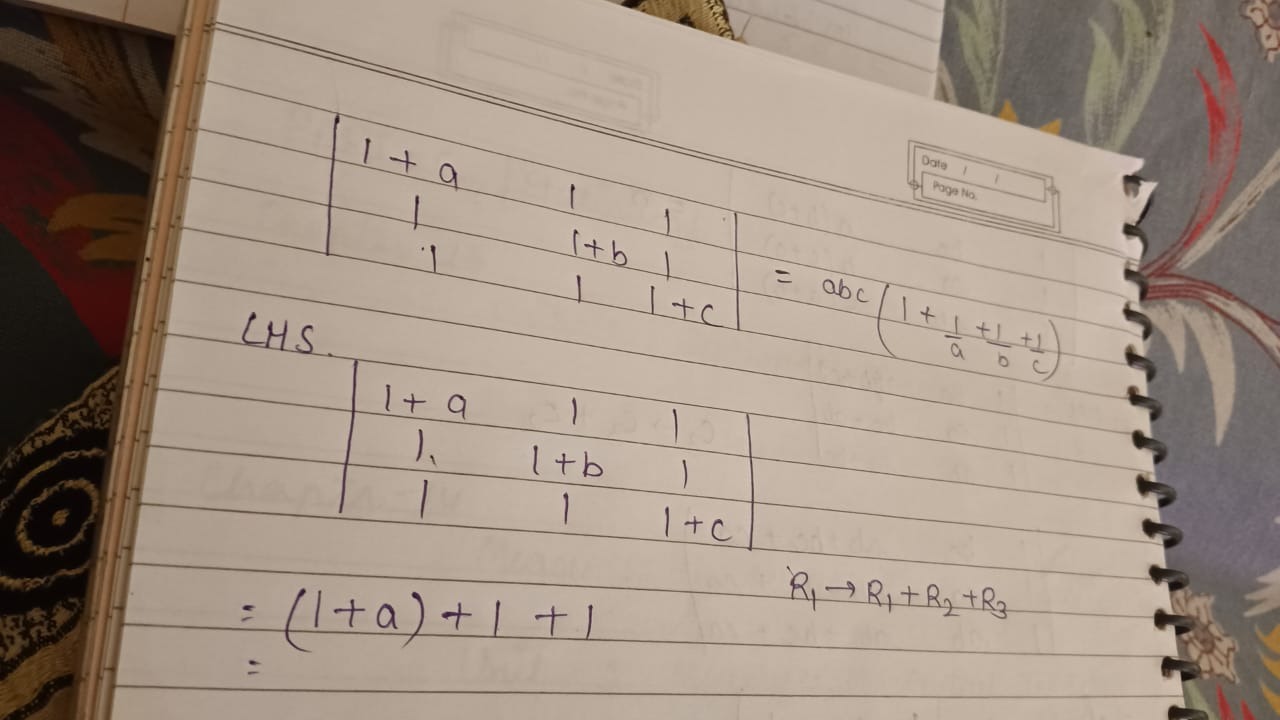 Date / /
Page No.
| 1 + a 1 1 |
| 1 1+b 1 | = abc ( 1 + 1/a + 1/b + 1/c )
| 1 1 1+c |
LHS.
| 1 + a 1 1 |
| 1 1+b 1 |
| 1 1 1+c |
R₁ → R₁ + R₂ + R₃
= (1+a) + 1 + 1
=